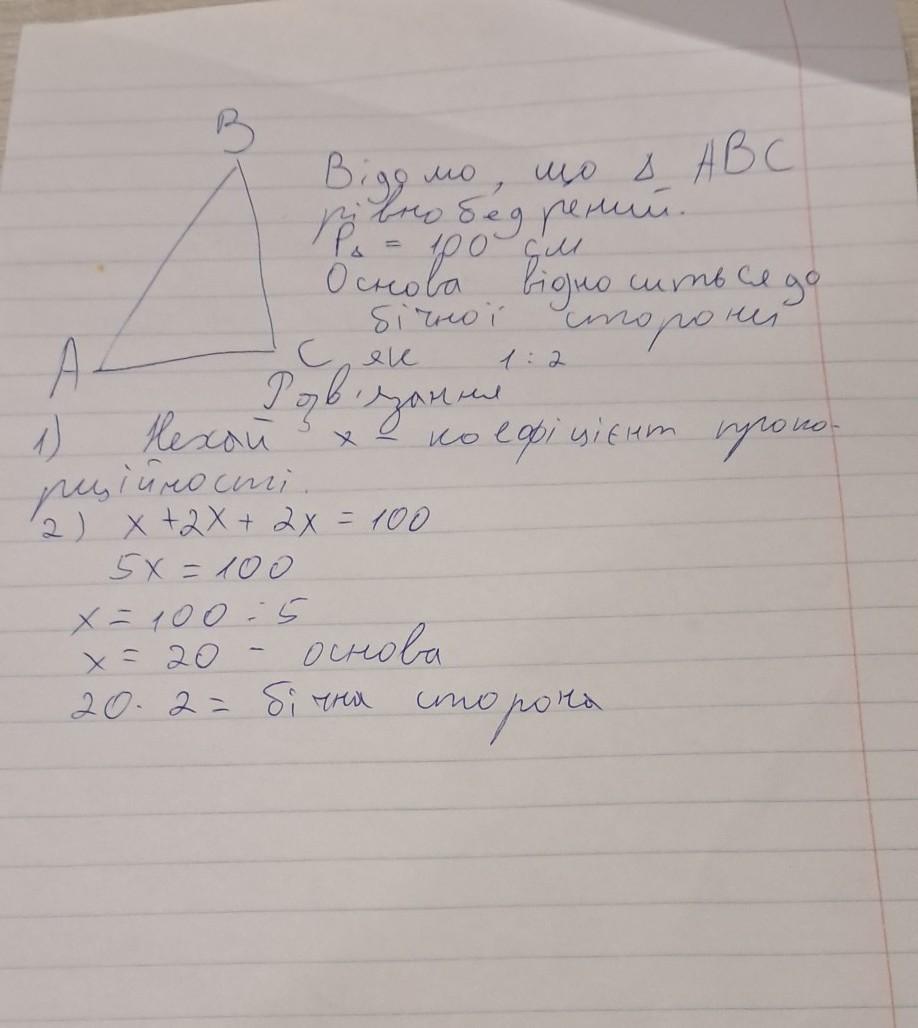 B
Відомо, що Δ ABC
рівнобедрений.
PΔ = 100 см
Основа відноситься до
бічної сторони
A
C, як 1:2
Розв'язання
1) Нехай x - коефіцієнт пропо-
рційності.
2) x + 2x + 2x = 100
5x = 100
x = 100 : 5
x = 20 - основа
20 · 2 = бічна сторона